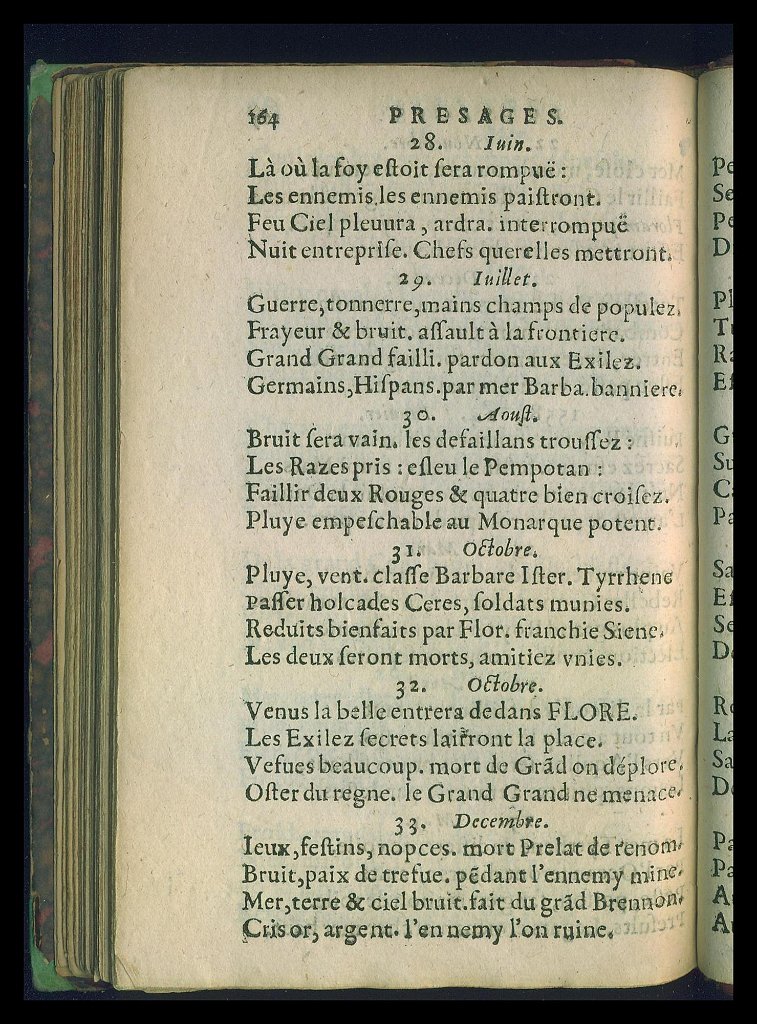 164 PRESAGES.
28. Iuin.
Là où la foy eſtoit ſera rompuë :
Les ennemis les ennemis paiſtront.
Feu Ciel pleuura , ardra. interrompuë
Nuit entrepriſe. Chefs querelles mettront.
29. Iuillet.
Guerre,tonnerre,mains champs de populez.
Frayeur & bruit. aſſault à la frontiere.
Grand Grand failli. pardon aux Exilez.
Germains,Hiſpans.par mer Barba.banniere.
30. Aouſt.
Bruit ſera vain. les defaillans trouſſez :
Les Razes pris : eſleu le Pempotan :
Faillir deux Rouges & quatre bien croiſez.
Pluye empeſchable au Monarque potent.
31. Octobre.
Pluye, vent. claſſe Barbare Iſter. Tyrrhene
Paſſer holcades Ceres, ſoldats munies.
Reduits bienfaits par Flor. franchie Siene.
Les deux ſeront morts, amitiez vnies.
32. Octobre.
Venus la belle entrera dedans FLORE.
Les Exilez ſecrets lairront la place.
Veſues beaucoup. mort de Grãd on déplore.
Oſter du regne. le Grand Grand ne menace.
33. Decembre.
Ieux,feſtins, nopces. mort Prelat de renom.
Bruit,paix de trefue. pẽdant l'ennemy mine.
Mer,terre & ciel bruit.fait du grãd Brennon.
Cris or, argent. l'en nemy l'on ruine.
Pe
Se
Pe
D
Pl
T
Ra
Eſ
G
Su
C
Pa
Sa
Eſ
Se
De
Re
La
Sa
D
Pa
Pa
A
A